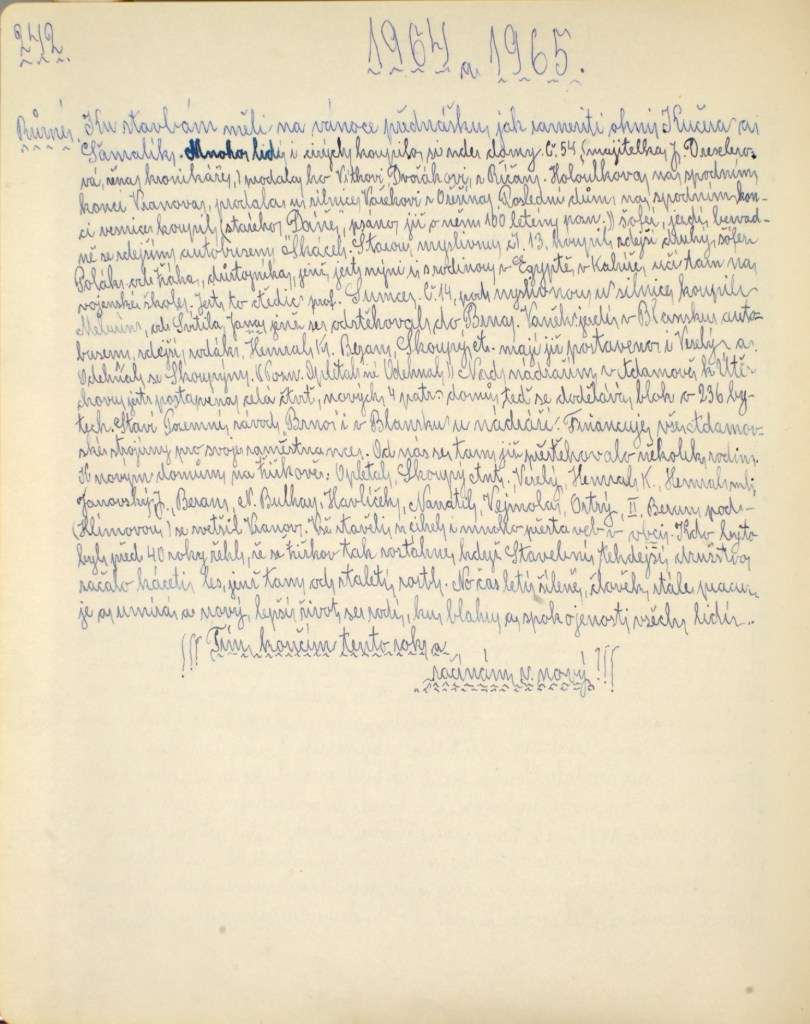 242.
1964 a 1965.
Různé. Ku stavbám měli na vánoce přednášku, jak zameziti ohni Kučera a
Šamalík. Mnoho lidí i cizích koupilo si zde domy. Č. 54, (majitelka J. Drexlero
vá, žena kronikáře,) prodala ho Vítkovi Dvořákovi, z Říčan. Holoulkova na spodním
konci Vranova, prodala u silnice Vašekovi z Ořešína. Poslední dům na spodním kon-
ci vesnice koupil (starého Dáně, psáno již o něm 100 letém pozn.)) šofer, jezdí
se zdejším autobusem Skácel. Starou myslivnu čl. 13, koupil zdejší druhý šofer
Polák od Žáka, důstojníka, jenž jest nyní i s rodinou v Egyptě, v Kahýře, učí tam na
vojenské škole. Jest to dědic prof. Sumce. Č. 14, pod myslivnou u silnice koupil
od Světíla, Jana, jenž se odstěhoval do Brna. Vaněk jezdí v Blansku auto-
busem, zdejší rodák. Hemzal K. Beran, Skoupý at. mají již postaveno i Veselý a
Odehnal se Skoupým. (Pozn. Opletal ne Odehnal.)) Nad nádražím v Adamově k Útě-
chovu jest postavena celá čtvrť, nových 4 patr. domů, teď se dodělává blok v 236 by-
tech. Staví Pozemní závody Brno i v Blansku u nádraží. Financuje vše Adamov-
ské strojírny pro svoje zaměstnance. Od nás se tam již přestěhovalo několik rodin.
K novým domům na Žižkově: Opletal, Skoupý Ant., Veselý, Hemzal K., Hemzal ml.,
Janovský J., Beran, N. Bulhar, Havlíček, Nanátil, Vejmola, Ostrý, II, Beran pod
(Klímovou) se zvětšil Vranov. Vše stavěli z cihel i mnoho přestaveb v obci. Kdo by to
byl před 40 roky řekl, že se Žižkov tak roztáhne, když Stavební tehdejší družstvo
začalo káceti les, jenž tam od staletí rostl. No čas letí šíleně, člověk stále pracu-
je a umírá a nový, lepší život se rodí, ku blahu a spokojenosti všech lidí..
!!! Tím končím tento rok a
začínám v nový !!!